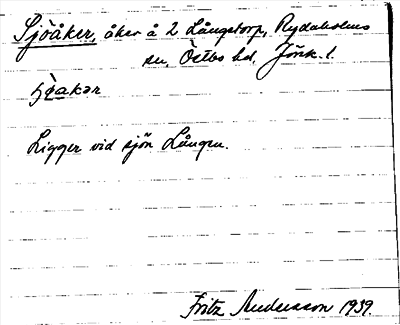 Sjöåker, åker å 2 Långstorp, Rydaholms
sn, Östbo hd, Jönk. l.
Ligger vid sjön Lången.
Fritz Andersson 1939.